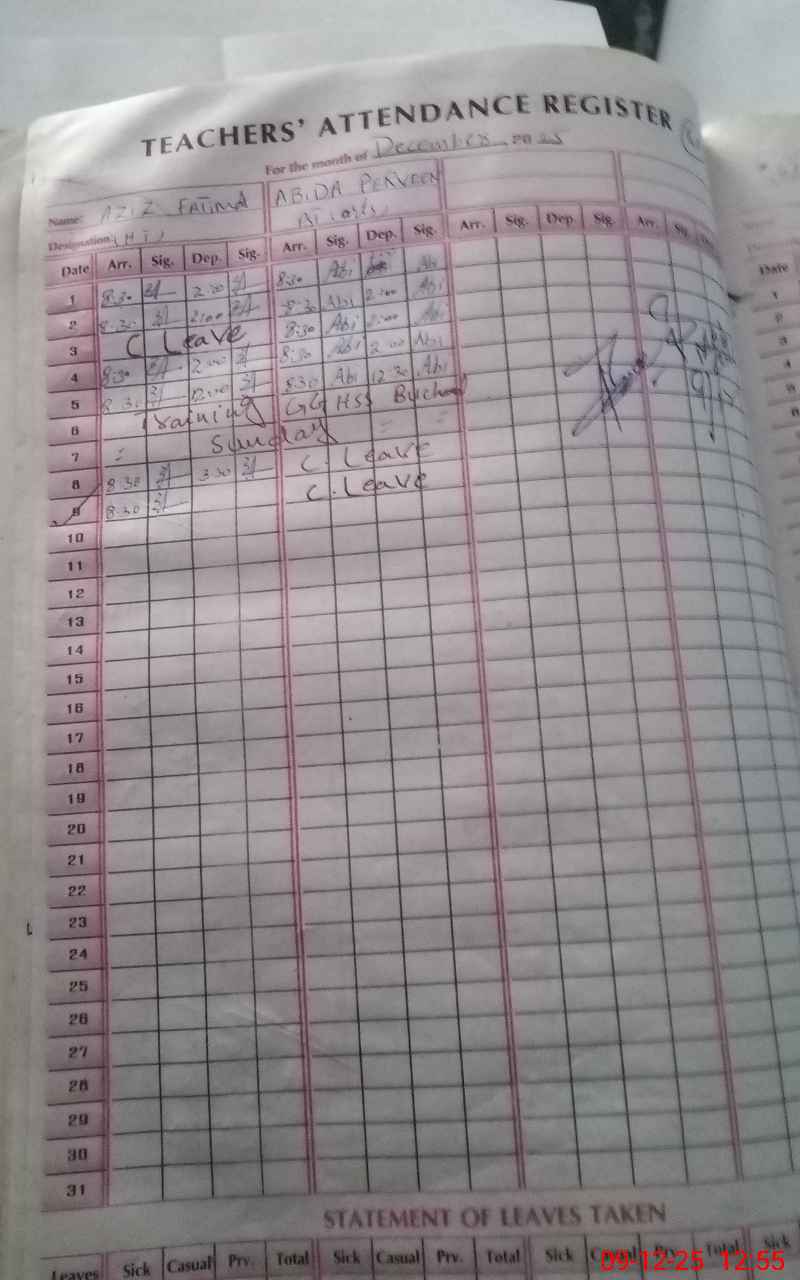 TEACHERS' ATTENDANCE REGISTER
For the month of December 2025
Name: AZIZ FATIMA ABIDA PERVEEN
Designation (HT)
Date Arr. Sig. Dep. Sig. Arr. Sig. Dep. Sig. Arr. Sig. Dep. Sig. Arr. Sig.
1 8:30 2:00 8:30 Abi Abi
2 8:30 2:00 8:30 Abi 2:00 Abi
3 C Leave 8:30 Abi 2:00 Abi
4 8:30 2:00 8:30 Abi 2:00 Abi
5 8:30 12:30 8:30 Abi 12:30 Abi
6 Training GGHSS
7 = Sunday = =
8 8:30 3:30 C. Leave
9 8:30 C. Leave
10
11
12
13
14
15
16
17
18
19
20
21
22
23
24
25
26
27
28
29
30
31
STATEMENT OF LEAVES TAKEN
Leaves Sick Casual Prv. Total Sick Casual Prv. Total Sick Casual Prv. Total Sick
09-12-25 12:55
Date
1
2
3
4
5
6